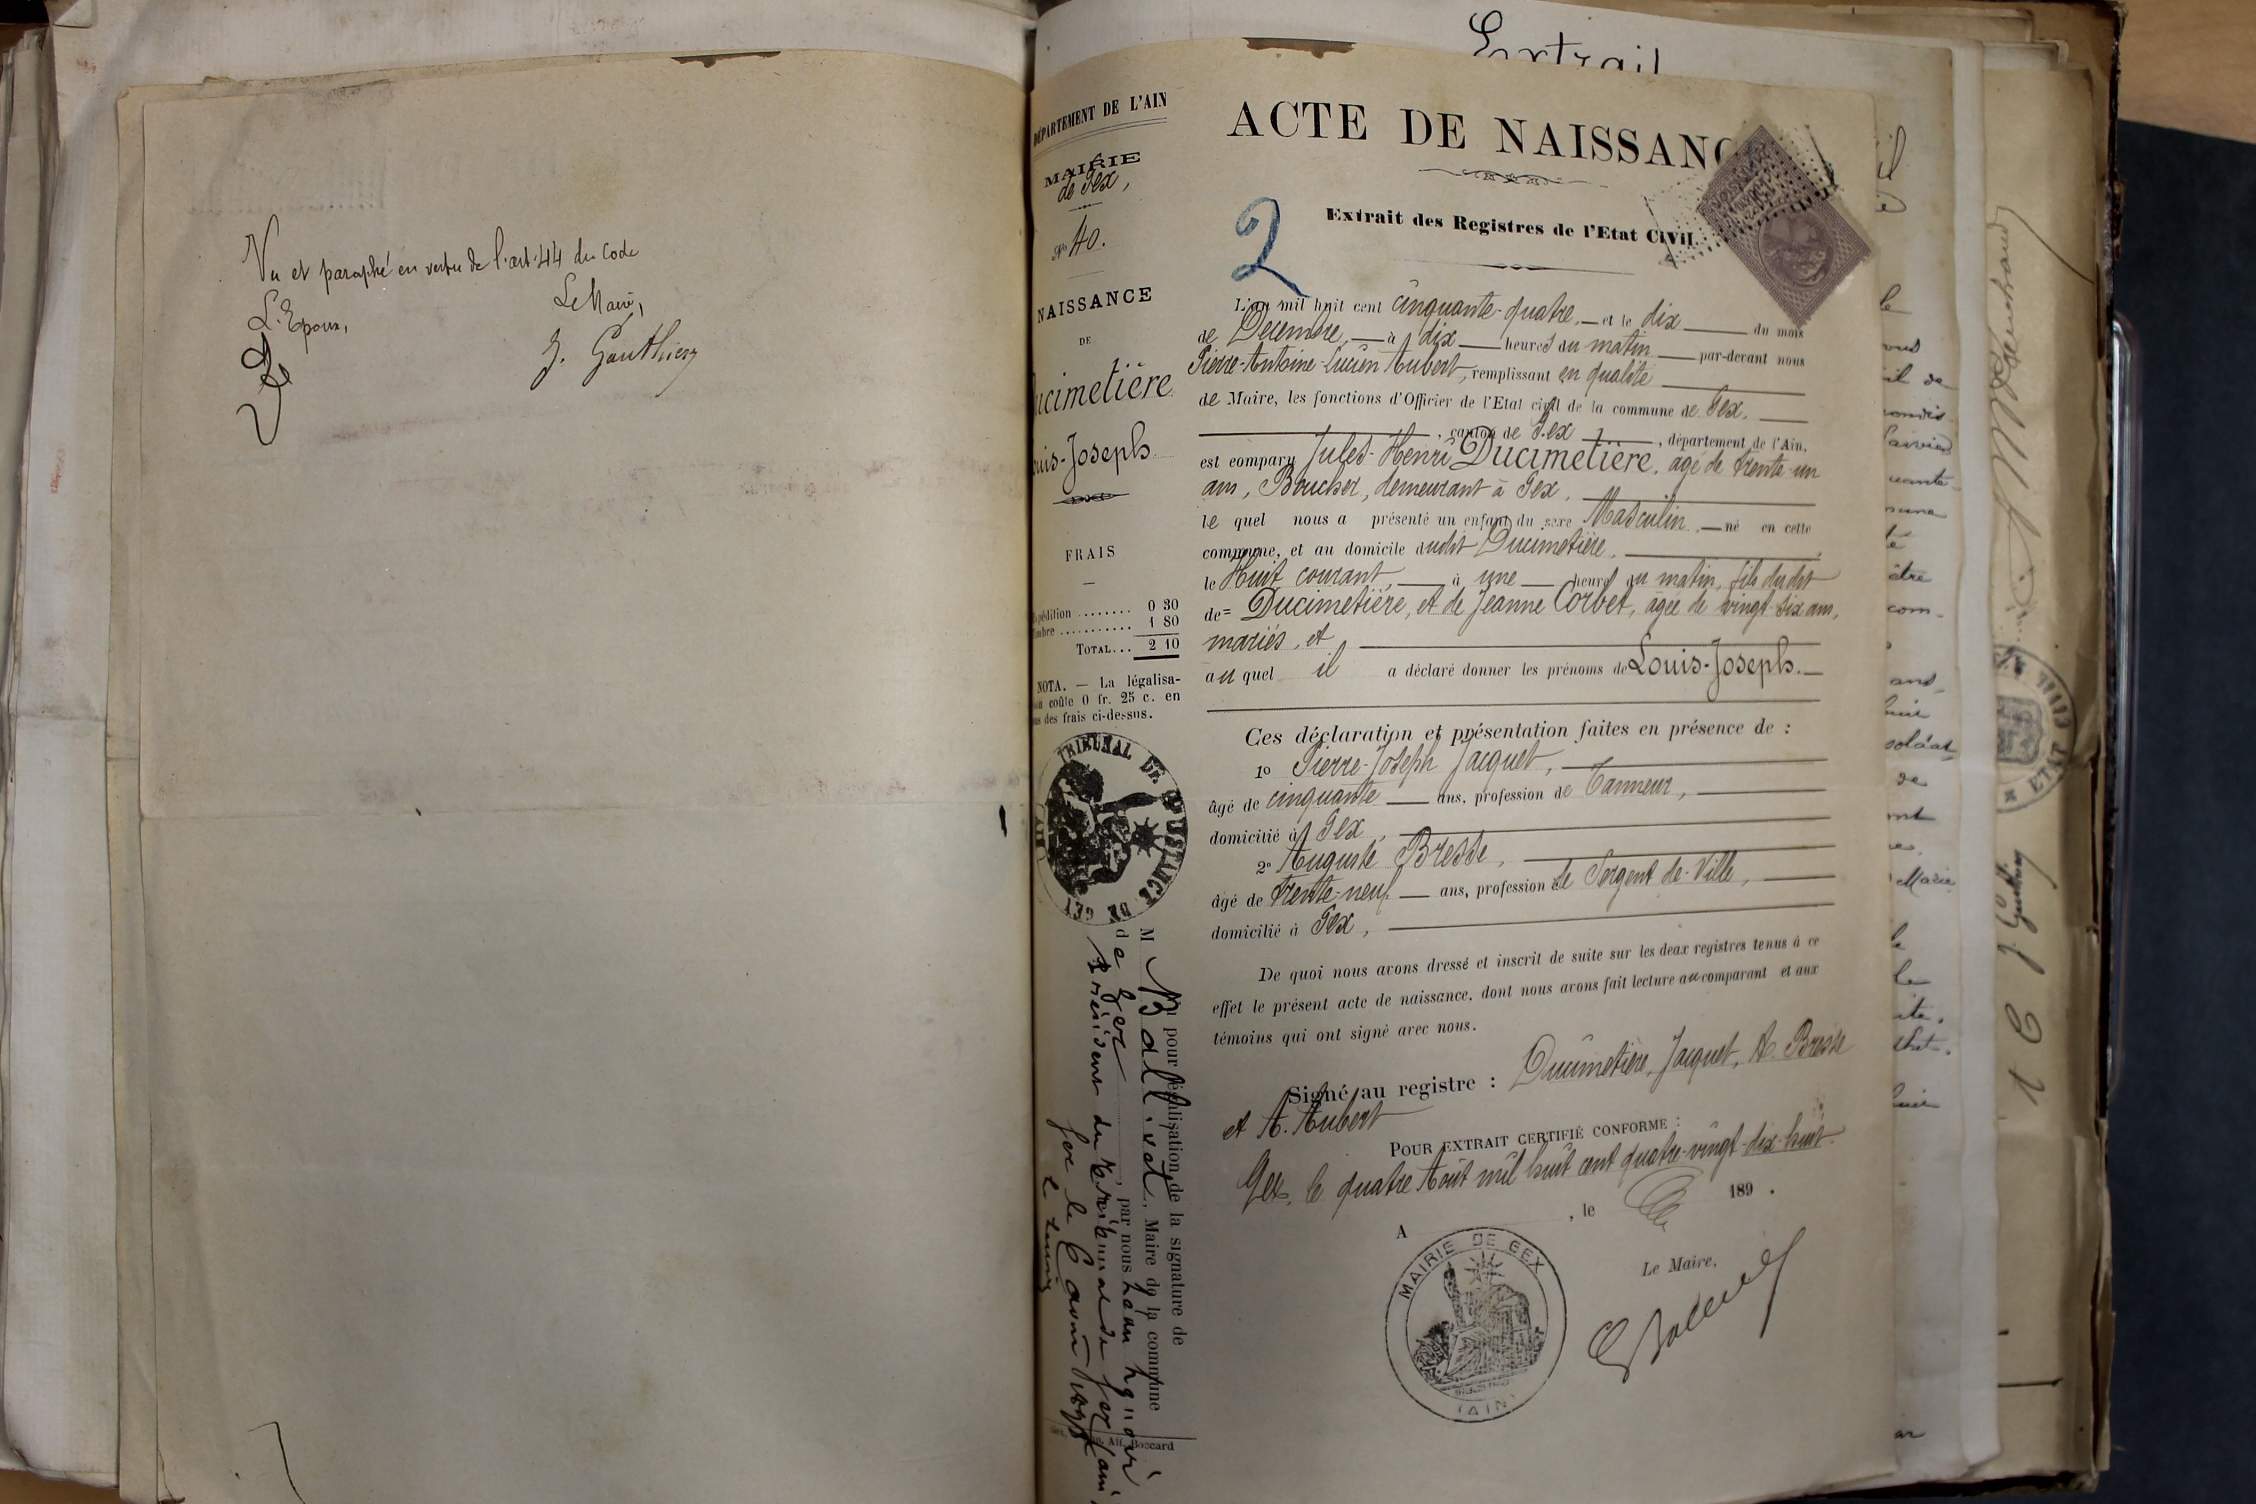 Vu et paraphé en vertu de l'art. 44 du Code
L'Epoux,
Le Maire,
J. Gauthier
Extrait
DÉPARTEMENT DE L'AIN
MAIRIE
de Gex,
N° 40.
NAISSANCE
DE
Ducimetière
Louis-Joseph
FRAIS
Expédition ........ 0 30
Timbre ........... 1 80
TOTAL... 2 10
NOTA. — La légalisa-
tion coûte 0 fr. 25 c. en
sus des frais ci-dessus.
TRIBUNAL DE 1re INSTANCE DE GEX (AIN)
Vu pour légalisation de la signature de
M Ballivet, Maire de la commune
de Gex, par nous
Président du Tribunal de Gex (Ain)
Gex le 6 août 1898
Alf. Boccard
ACTE DE NAISSANC
2
Extrait des Registres de l'Etat Civil.
L'an mil huit cent cinquante-quatre, et le dix du mois
de Décembre, à dix heures du matin par-devant nous
Pierre-Antoine-Lucien Aubert, remplissant en qualité
de Maire, les fonctions d'Officier de l'Etat civil de la commune de Gex,
, canton de Gex, département de l'Ain,
est comparu Jules-Henri Ducimetière, âgé de trente-un
ans, Boucher, demeurant à Gex,
le quel nous a présenté un enfant du sexe Masculin, né en cette
commune, et au domicile dudit Ducimetière,
le Huit courant, à une heure du matin, fils dudit
de= Ducimetière, et de Jeanne Corbet, âgée de vingt-six ans,
mariés, et
auquel il a déclaré donner les prénoms de Louis-Joseph.
Ces déclaration et présentation faites en présence de :
1° Pierre-Joseph Jacquet,
âgé de cinquante ans, profession de Tanneur,
domicilié à Gex,
2° Auguste Bresse,
âgé de trente-neuf ans, profession de Sergent de-Ville,
domicilié à Gex,
De quoi nous avons dressé et inscrit de suite sur les deux registres tenus à ce
effet le présent acte de naissance, dont nous avons fait lecture au comparant et aux
témoins qui ont signé avec nous.
Signé au registre : Ducimetière, Jacquet, A. Bresse
et A. Aubert
POUR EXTRAIT CERTIFIÉ CONFORME :
Gex, le quatre Août mil huit cent quatre-vingt-dix-huit.
A , le 189 .
Le Maire,
MAIRIE DE GEX
(AIN)
ETAT CIVIL
J. Gauthier